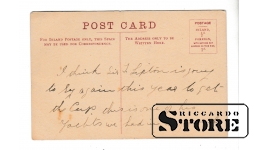 POST CARD
FOR INLAND POSTAGE ONLY, THIS SPACE MAY BE USED FOR CORRESPONDENCE.
THE ADDRESS ONLY TO BE WRITTEN HERE.
POSTAGE
INLAND
½ᵈ
FOREIGN
1ᵈ
I think Sir T Lipton is going
to try again this year to get
the Cup this is one of his
Yachts we had
RICCARDO
STORE